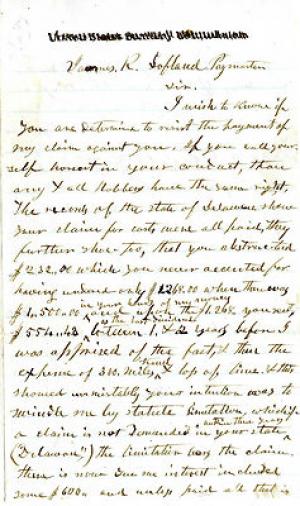 James R. Lofland Paymaster
Sir.
I wish to know if
you are determine to resist the payment of
my claim against you. If you call your-
self honest in your conduct, than
any & all Robbers have the same right.
The records of the state of Delaware show
your claim for costs were all paid, they
further show too, that you abstracted
$232.00 which you never accounted for
having only $1268.00 when there was
$1,500.00 in your of my money
$554.43 between 1 & 2 years before I
was apprised of the fact, & thus the
expense of 300. miles & loss of time. &
showed unmistakably your intention was to
swindle me by statute limitation, which if
a claim is not demanded in your state
(Delaware") the limitation bars the claim.
there is now due me interest included
some $600. and unless paid all that is